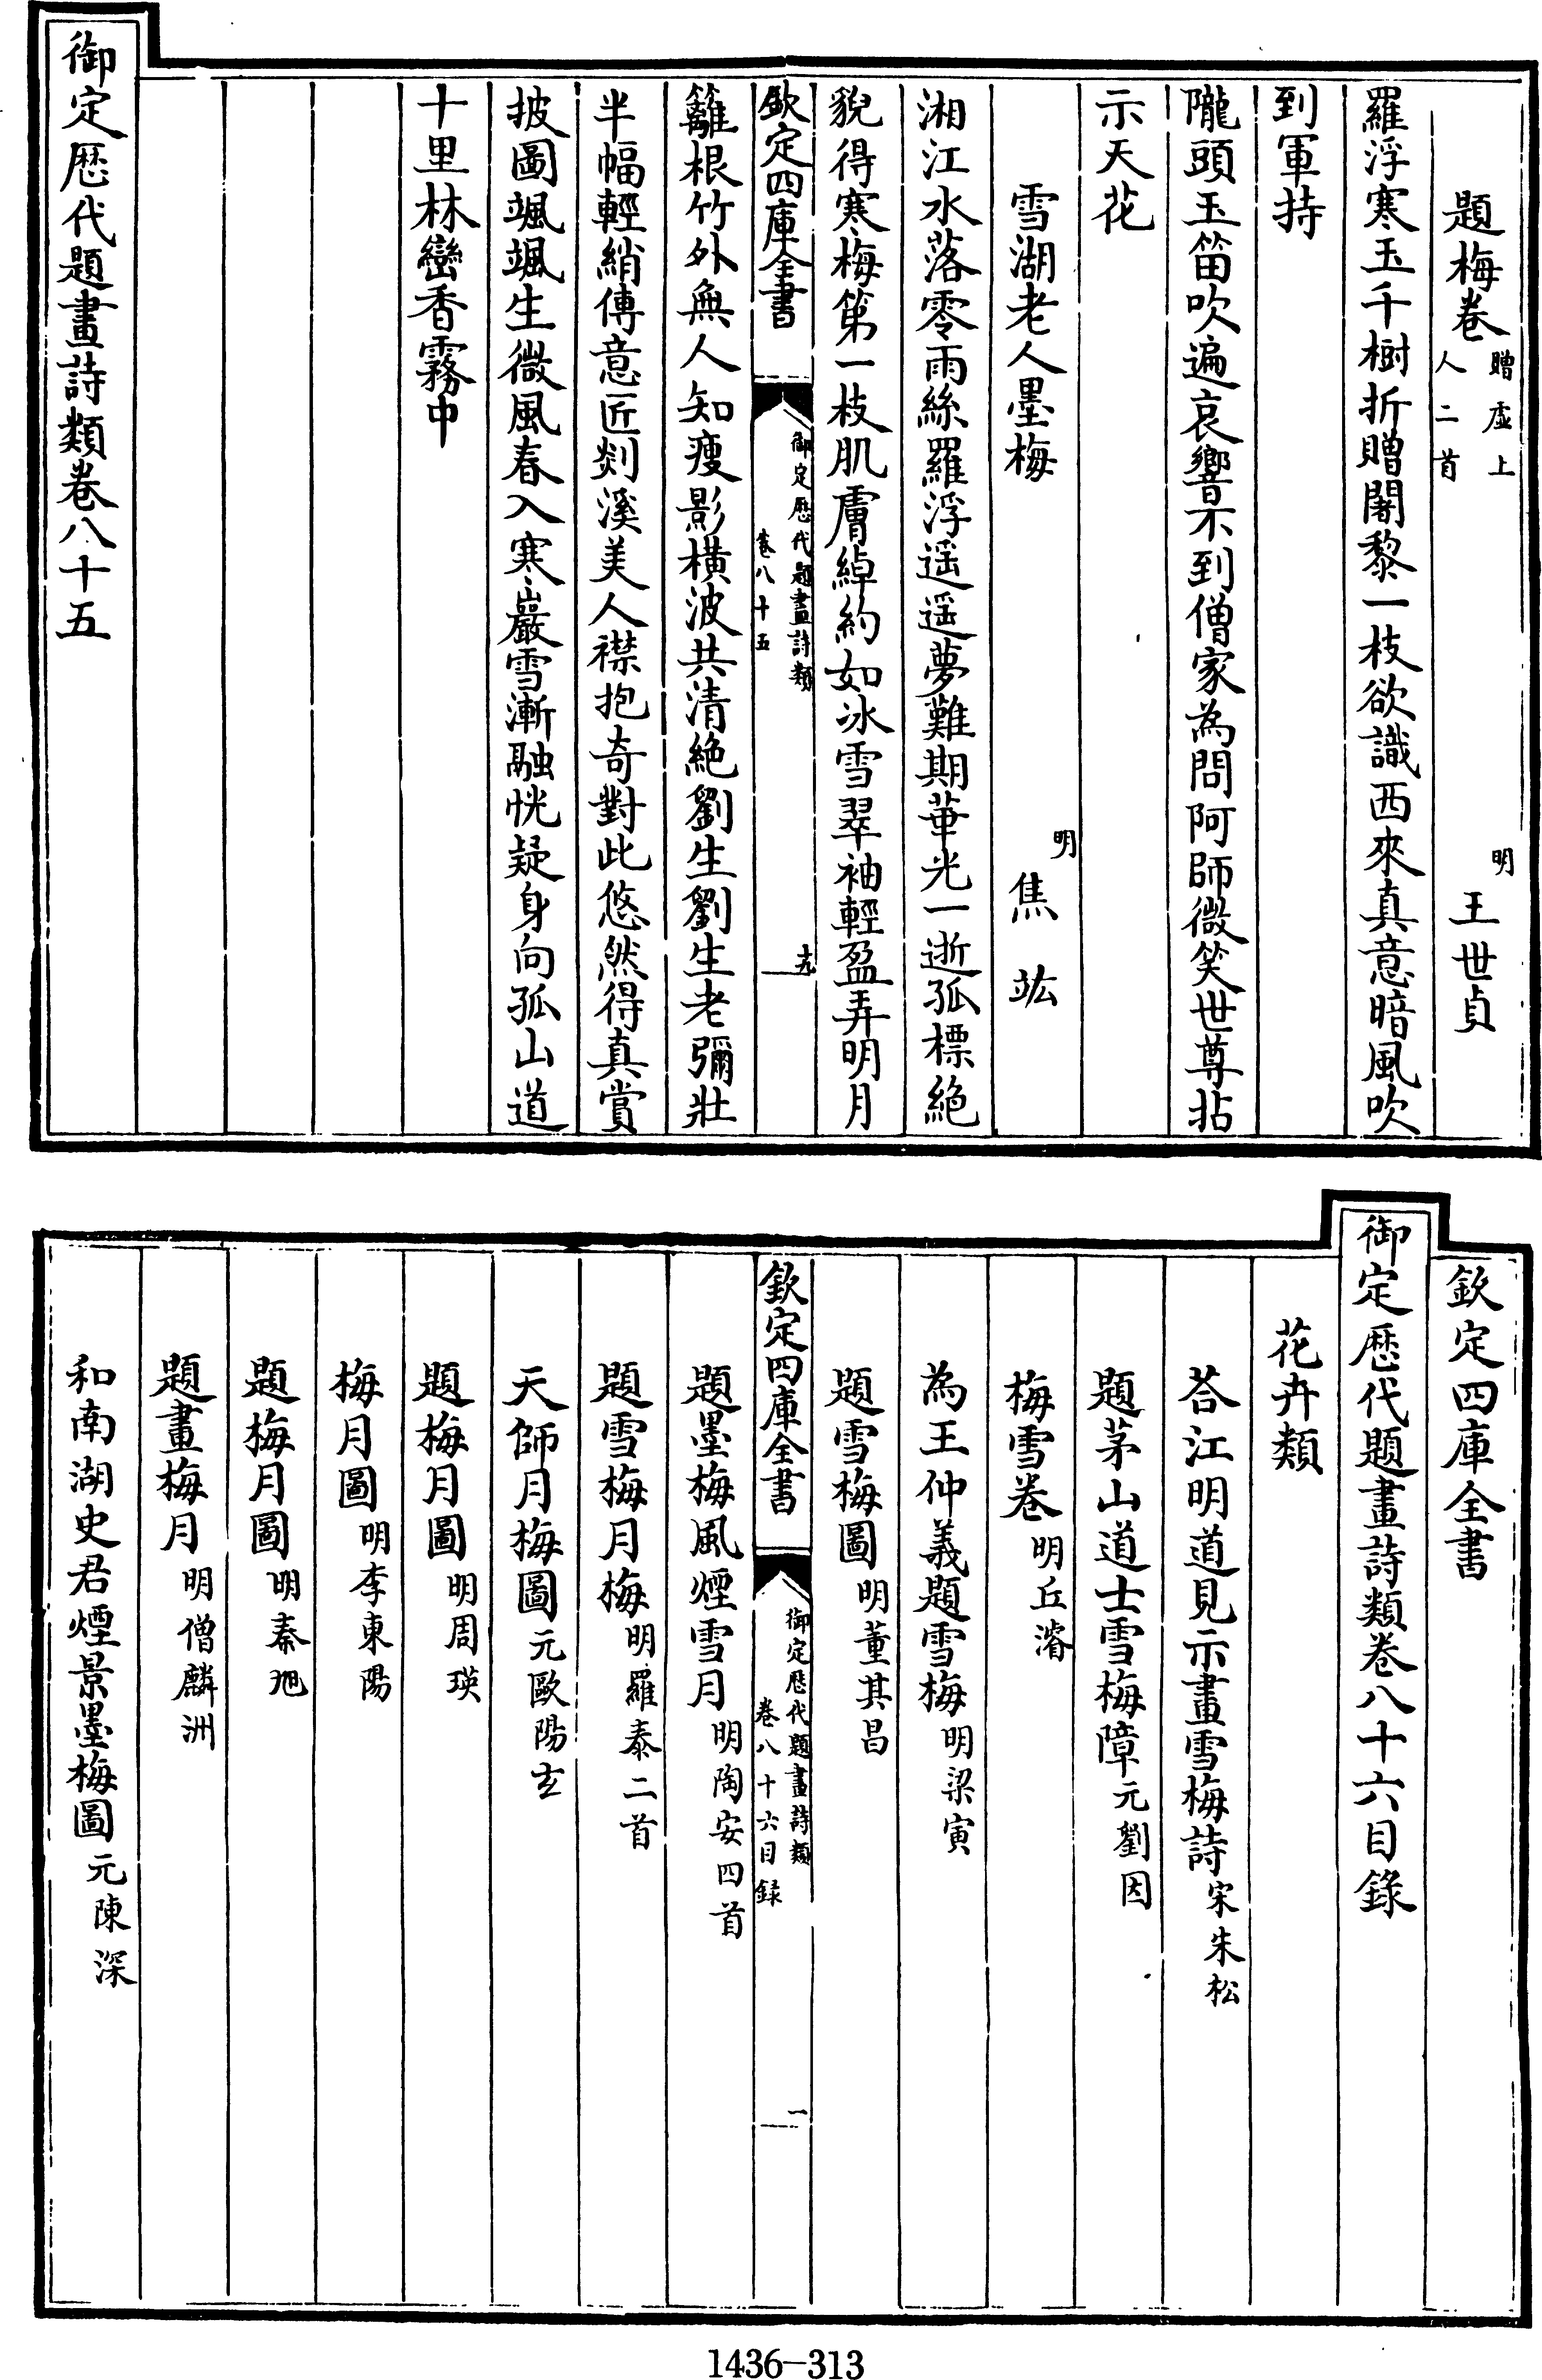 題梅卷贈虛上人二首　明王世貞
羅浮寒玉千樹折贈闍黎一枝欲識西來真意暗風吹
到軍持
隴頭玉笛吹遍哀響不到僧家為問阿師微笑世尊拈
示天花
雪湖老人墨梅　明焦竑
湘江水落零雨絲羅浮遥遥夢難期華光一逝孤標絶
貌得寒梅第一枝肌膚綽約如冰雪翠袖輕盈弄明月
欽定四庫全書　御定歷代題畫詩類卷八十五　十九
籬根竹外無人知瘦影橫波共清絶劉生劉生老彌壯
半幅輕綃傳意匠剡溪美人襟抱奇對此悠然得真賞
披圖颯颯生微風春入寒巖雪漸融恍疑身向孤山道
十里林巒香霧中
御定歷代題畫詩類卷八十五
欽定四庫全書
御定歷代題畫詩類卷八十六目錄
花卉類
荅江明道見示畫雪梅詩宋朱松
題茅山道士雪梅障元劉因
梅雪卷明丘濬
為王仲義題雪梅明梁寅
題雪梅圖明董其昌
欽定四庫全書　御定歷代題畫詩類卷八十六目錄　一
題墨梅風煙雪月明陶安四首
題雪梅月梅明羅泰二首
天師月梅圖元歐陽玄
題梅月圖明周瑛
梅月圖明李東陽
題梅月圖明秦旭
題畫梅月明僧麟洲
和南湖史君煙景墨梅圖元陳深
1436-313